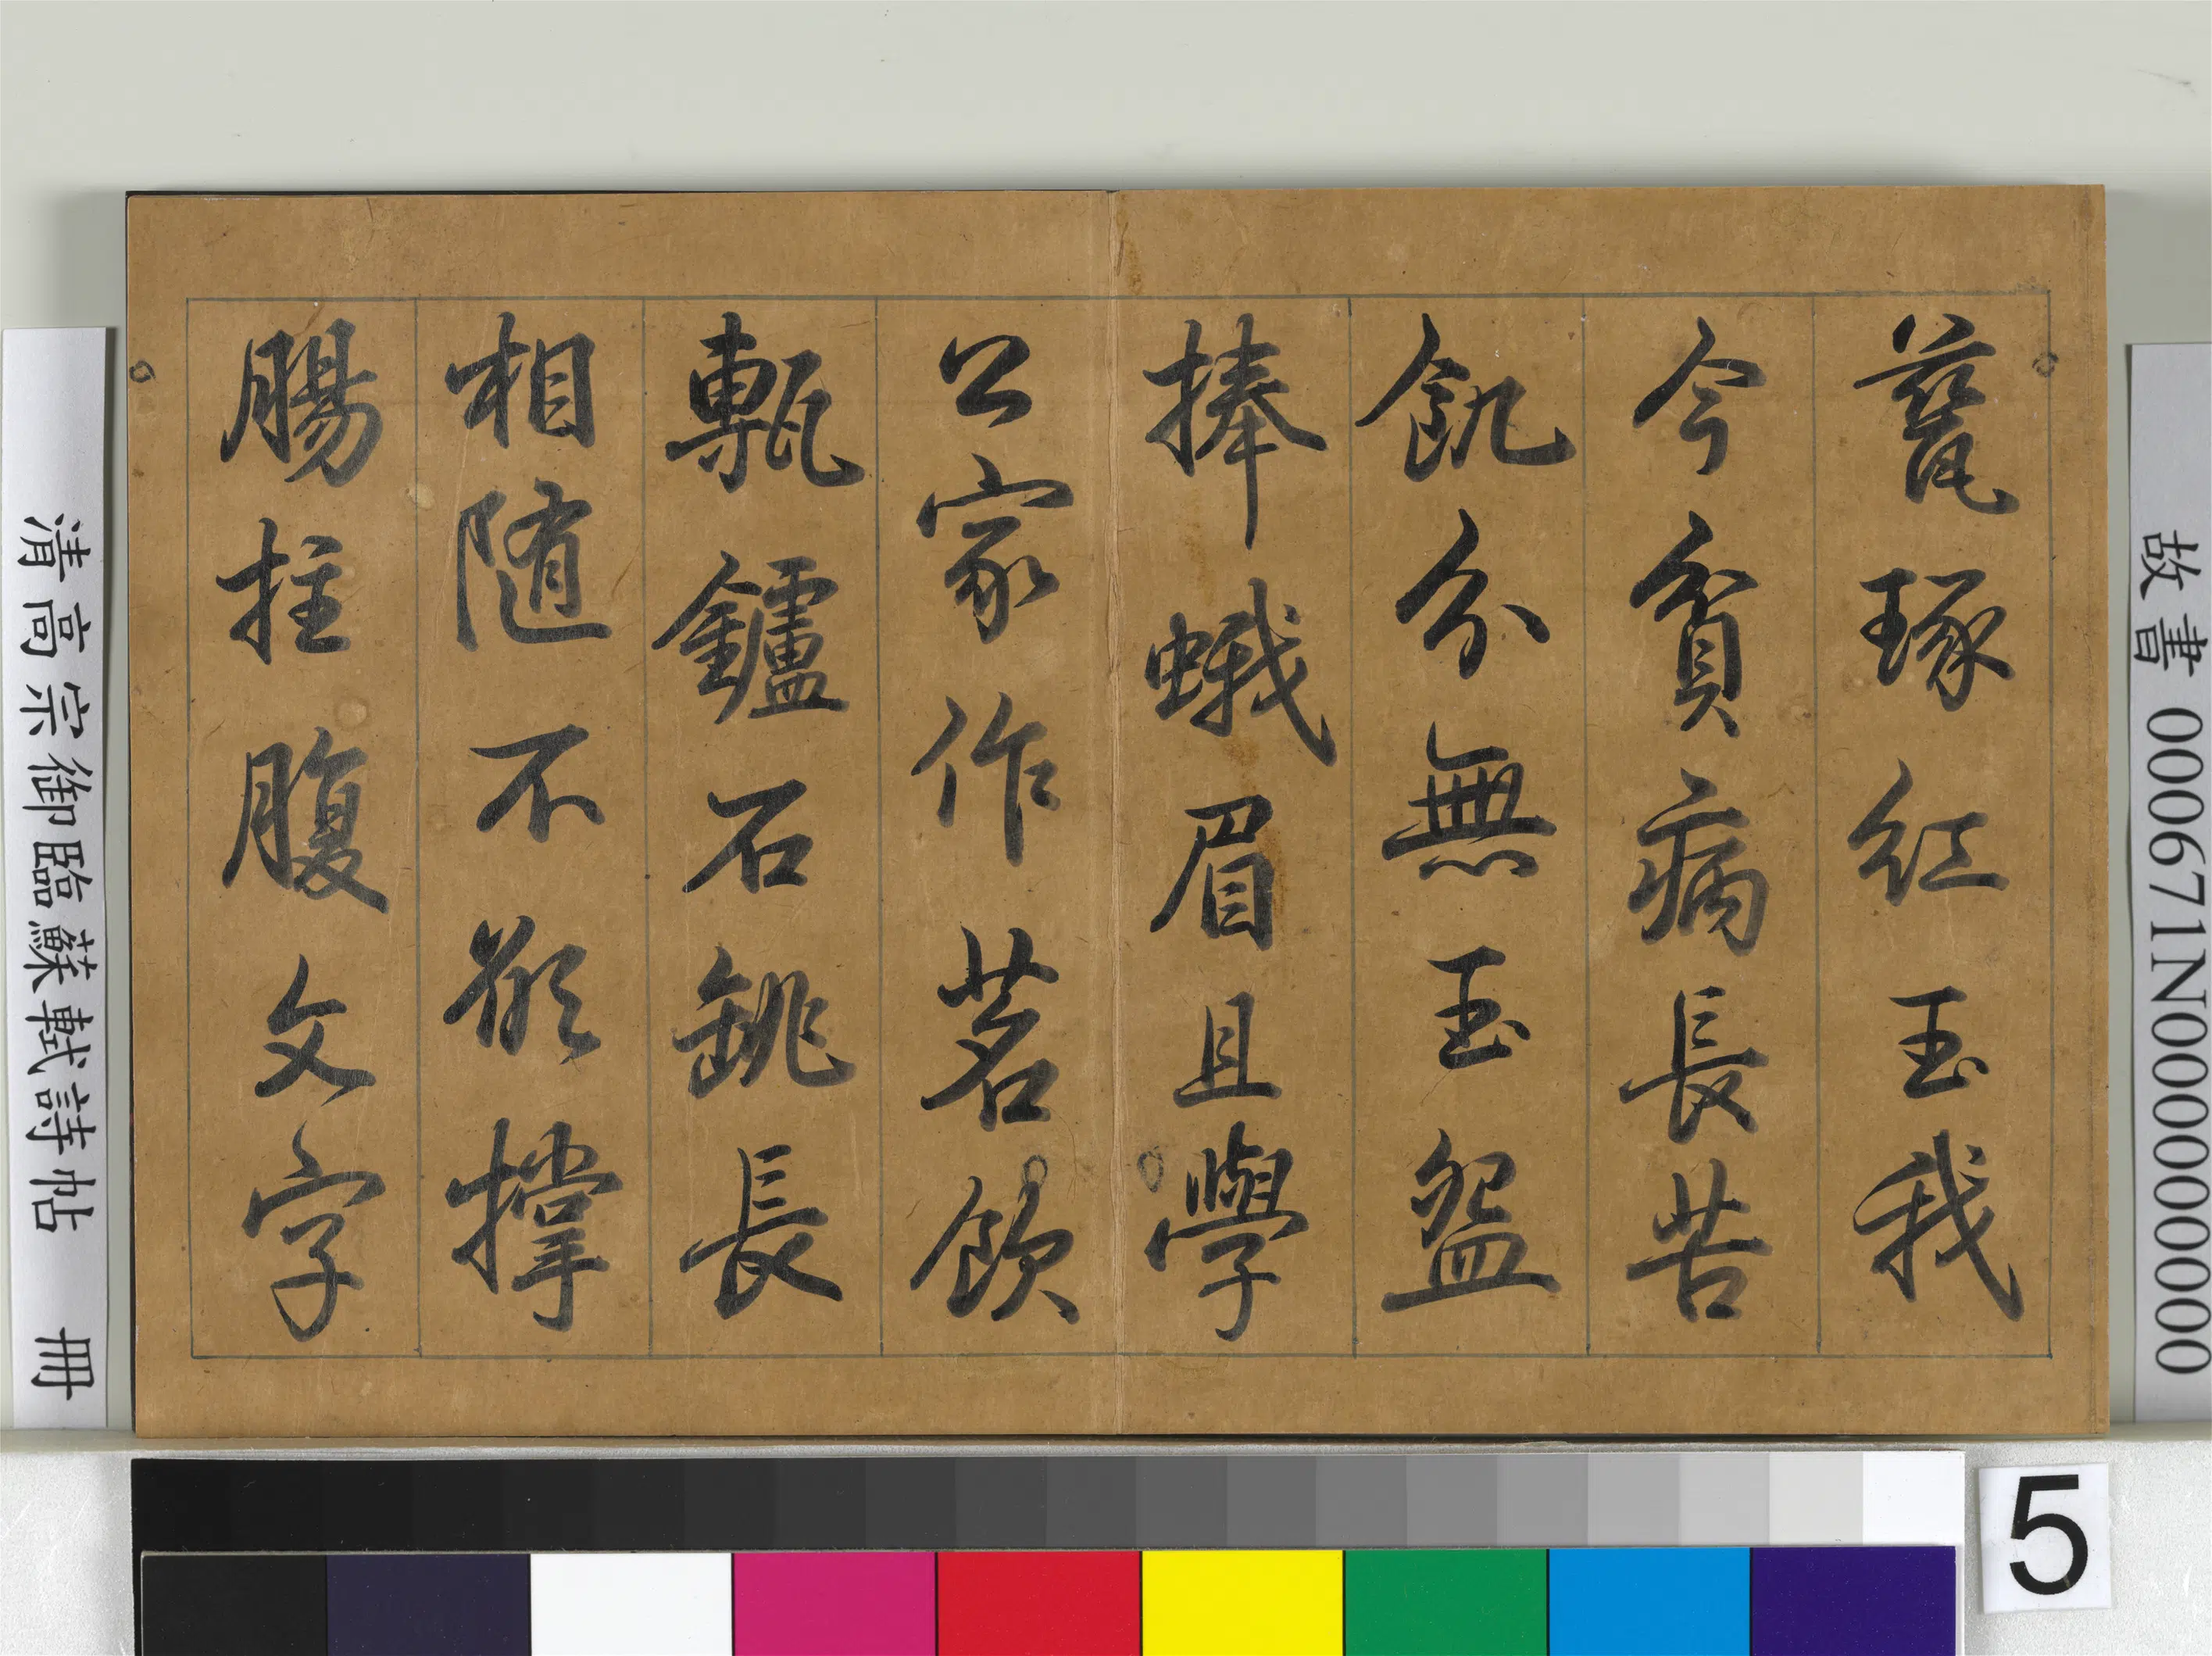 甆琢紅玉我
今貧病長苦
飢分無玉盌
捧蛾眉且學
公家作茗飲
甎鑪石銚長
相隨不欲撑
腸拄腹文字
清高宗御臨蘇軾詩帖 冊
故書 000671N000000000
5